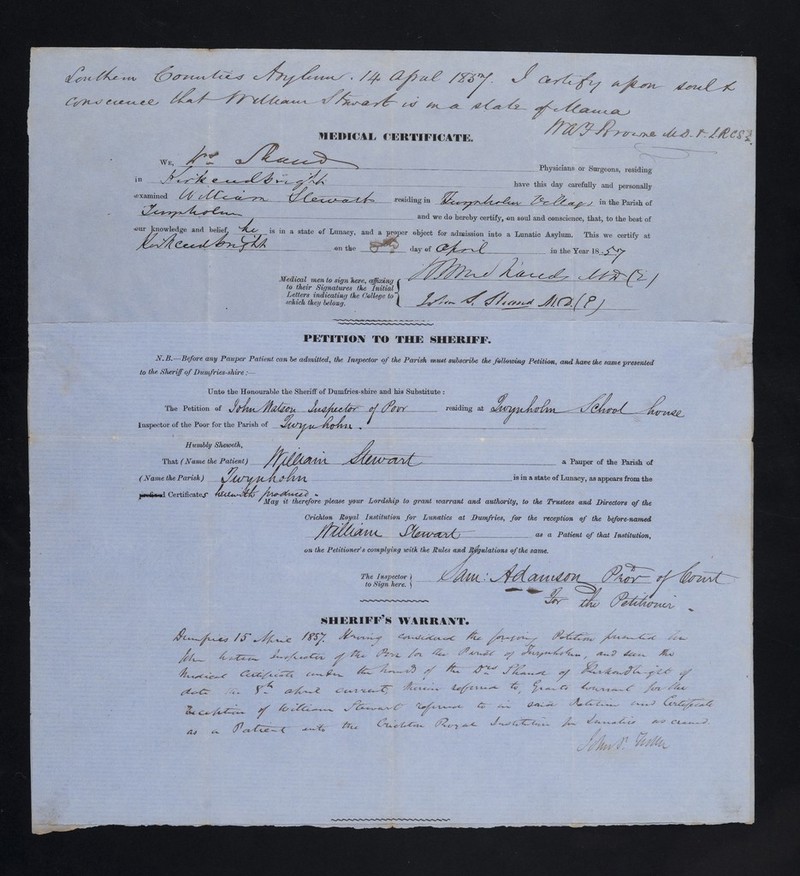 Southern Counties Asylum. 14 April 1857. I certify upon soul &
conscience that William Stewart is in a state of Mania
WAF Browne M.D. F. L.R.C.S.E.
MEDICAL CERTIFICATE.
WE, Drs Shand Physicians or Surgeons, residing
in Kirkcudbright have this day carefully and personally
examined William Stewart residing in Twynholm Village in the Parish of
Twynholm and we do hereby certify, on soul and conscience, that, to the best of
our knowledge and belief, he is in a state of Lunacy, and a proper object for admission into a Lunatic Asylum. This we certify at
Kirkcudbright on the day of April in the Year 18 57
Medical men to sign here, affixing
to their Signatures the Initial
Letters indicating the College to
which they belong.
Shand M.D. (E)
John S. Shand M.D. (E)
PETITION TO THE SHERIFF.
N.B.—Before any Pauper Patient can be admitted, the Inspector of the Parish must subscribe the following Petition, and have the same presented
to the Sheriff of Dumfries-shire:—
Unto the Honourable the Sheriff of Dumfries-shire and his Substitute:
The Petition of John Watson Inspector of Poor residing at Twynholm School house
Inspector of the Poor for the Parish of Twynholm.
Humbly Sheweth,
That (Name the Patient) William Stewart a Pauper of the Parish of
(Name the Parish) Twynholm is in a state of Lunacy, as appears from the
Certificates herewith produced.
May it therefore please your Lordship to grant warrant and authority, to the Trustees and Directors of the
Crichton Royal Institution for Lunatics at Dumfries, for the reception of the before-named
William Stewart as a Patient of that Institution,
on the Petitioner's complying with the Rules and Regulations of the same.
The Inspector
to Sign here.
Sam: Adamson Pror of Court
For the Petitioner
SHERIFF'S WARRANT.
Dumfries 15 April 1857. Having considered the foregoing Petition presented for
John Watson Inspector of the Poor for the Parish of Twynholm, and seen the
Medical Certificate under the hands of the Drs Shand of Kirkcudbright of
date the 8th April current therein referred to, Grants Warrant for the
Reception of William Stewart referred to in said Petition and Certificate
as a Patient into the Crichton Royal Institution for Lunatics as craved.
John